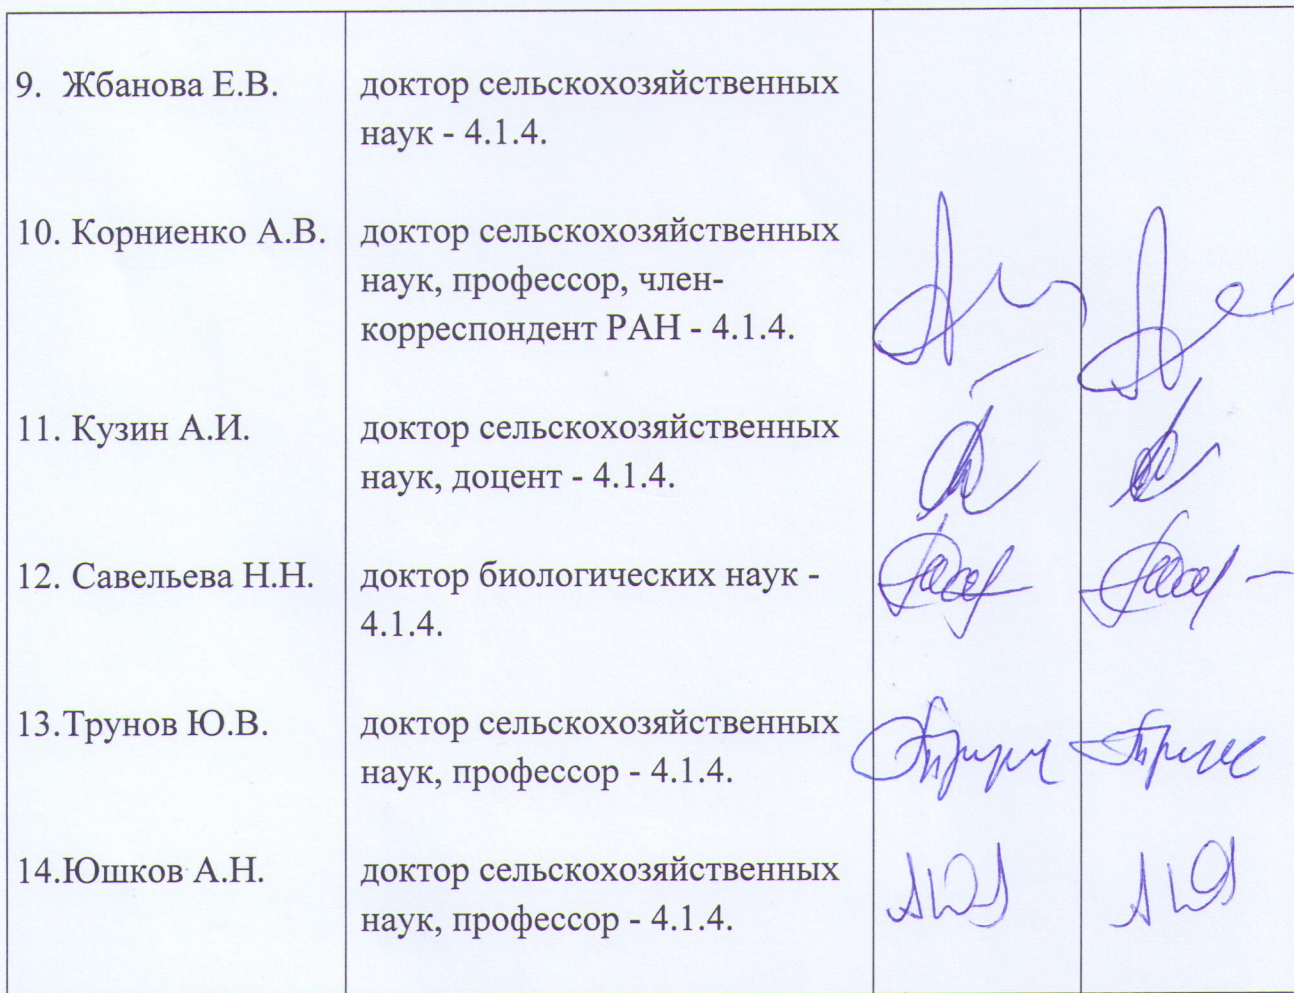 9. Жбанова Е.В.
доктор сельскохозяйственных
наук - 4.1.4.
10. Корниенко А.В.
доктор сельскохозяйственных
наук, профессор, член-
корреспондент РАН - 4.1.4.
11. Кузин А.И.
доктор сельскохозяйственных
наук, доцент - 4.1.4.
12. Савельева Н.Н.
доктор биологических наук -
4.1.4.
13.Трунов Ю.В.
доктор сельскохозяйственных
наук, профессор - 4.1.4.
14.Юшков А.Н.
доктор сельскохозяйственных
наук, профессор - 4.1.4.